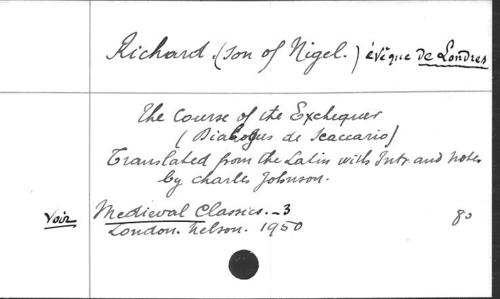 Richard. (Son of Nigel.) évêque de Londres
The Course of the Exchequer
(Dialogus de Scaccario)
Translated from the Latin with Intr. and notes
by Charles Johnson.
Voir Medieval Classics. _3 80
London. Nelson. 1950